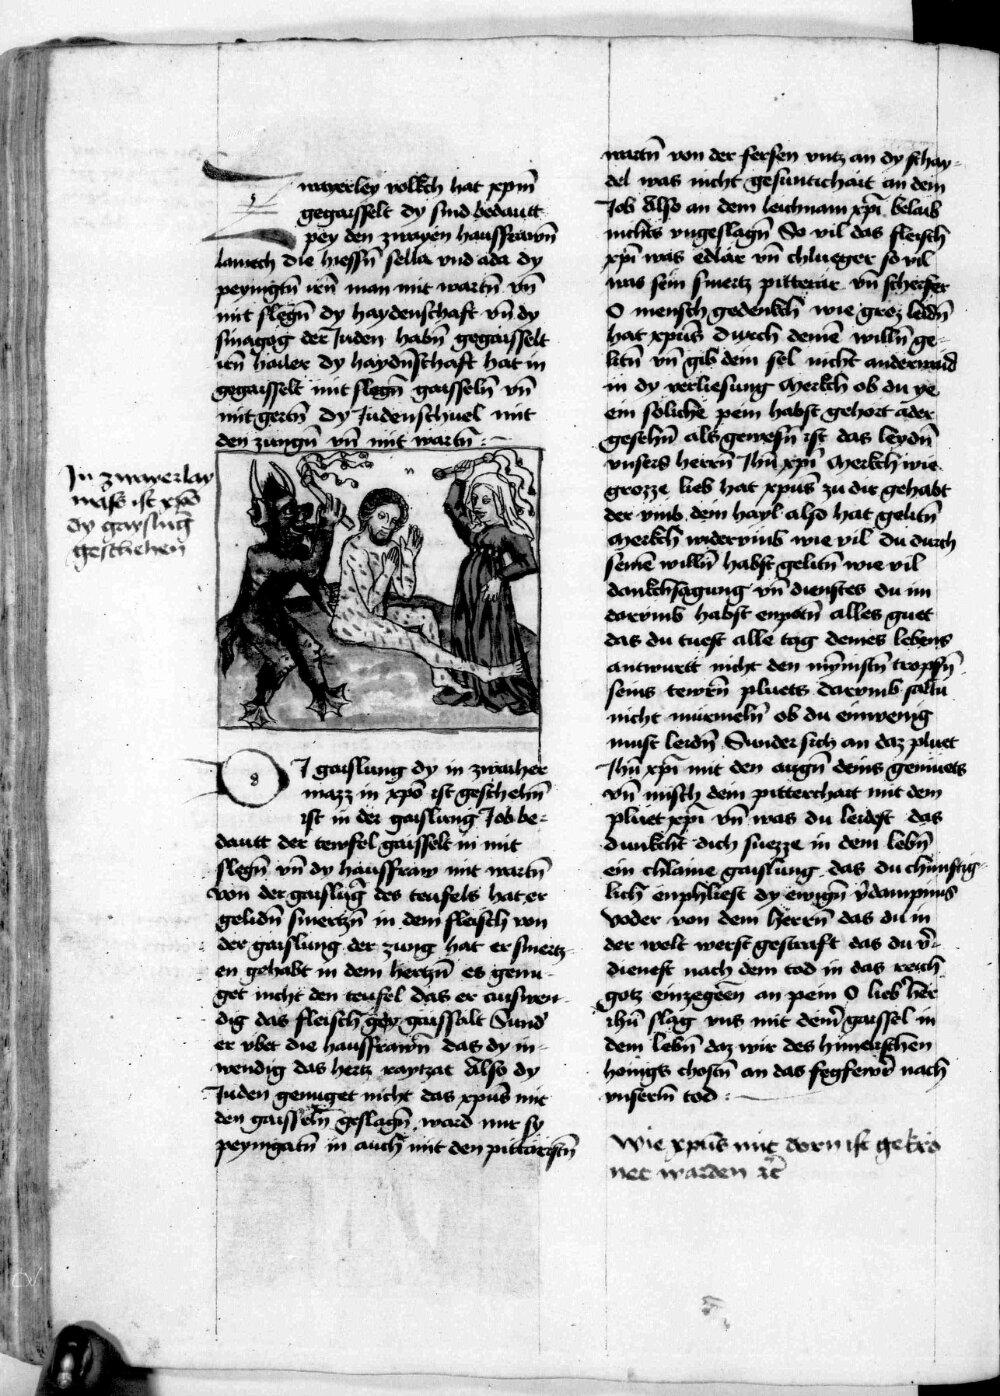 Zwayerley volkch hat xpm̄
gegaisselt dy sind bedautt
pey den zwayen hausfrawn̄
lamech die hiessn̄ sella vnd ada dy
peynigtn̄ irn̄ man mit wartn̄ vn̄
mit slegn̄ dy haydenschaft vn̄ dy
sinagog der Juden habn̄ gegaisselt
irn̄ hailer dy haydn̄schaft hat in
gegaisselt mit slegn̄ gaisseln̄ vn̄
mit gertn̄ dy Judenschuel mit
den zungn̄ vn̄ mit wartn̄ :~
In zwayerlay
mass ist xpō
dy gayslunḡ
geschehen
DJ gaislung dy in zwaiher
mazz in xpō ist geschehn̄
ist in der gaislung Job be-
dautt der tewfel gaisselt in mit
slegn̄ vn̄ dy hausfraw mit wartn̄
von der gaislūg des teufels hat er
gelidn̄ smertzn̄ in dem fleisch von
der gaislung der zung hat er smertz-
en gehabt in dem hertzn̄ es genu-
get nicht den teufel das er auswen-
dig das fleisch gaissalt Sund̄
er vber die hausfrawn̄ das dy in-
wendig das hertz raytzat Also dy
Juden genuget nicht das xpūs mit
den gaisseln̄ geslagn̄ ward nur sy
peynigatn̄ in auch mit den pittaristn̄
wartn̄ von der fersen vntz an dy schay-
del was nicht gesuntichait an dem
Job Also an dem leichnam xpī belaib
nichts vngeslagn̄ So vil das fleisch
xpī was edlar vn̄ chlueger so vil
was sein smertz pitterar vn̄ scherfer
O mensch gedenkch wie groz leidn̄
hat xpūs durch deinē willn̄ ge-
litn̄ vn̄ gib dein sel nicht anderwaid
in dy verliesung Merkch ob du ye
ein soliche pein habst gehort ader
gesehn̄ als gewesn̄ ist das leydn̄
vnsers herrn̄ Jhū xpī Merkch wie
grozze lieb hat xpūs zu dir gehabt
der vmb dein hayl also hat gelitn̄
Merkch widervmb wie vil du durch
seinē willn̄ habst gelitn̄ wie vil
dankchsagung vn̄ dienstes du im
darvmb habst enpotn̄ alles guet
das du tuest alle tag deines lebens
antwurtt nicht den mynnistn̄ tropfn̄
seins tewrn̄ pluets darvmb saltu
nicht mūrmeln̄ ob du einwenig
must leidn̄ Sunder sich an daz pluet
Jhū xpī mit den augn̄ deins gemuets
vn̄ misch dein pitterchait mit dem
pluet xpī vn̄ was du leidest das
dunkcht dich suezze in dem lebn̄
ein chlaine gaislung das du chunftig-
lich enphliest dy ewign̄ v̄dampnus
voder von dem herrn̄ das du in
der welt werst gestraft das du v̄-
dienest nach dem tod in das reich
gotz einzegeen an pein O lieb̄ her
ihū slag vns mit dein̄ gaissel in
dem lebn̄ daz wir des himelischen
honigs chostn̄ an das fegfewr̄ nach
vnserm̄ tod :~
Wie xpūs mit dorn ist gekrö
net warden rc̄